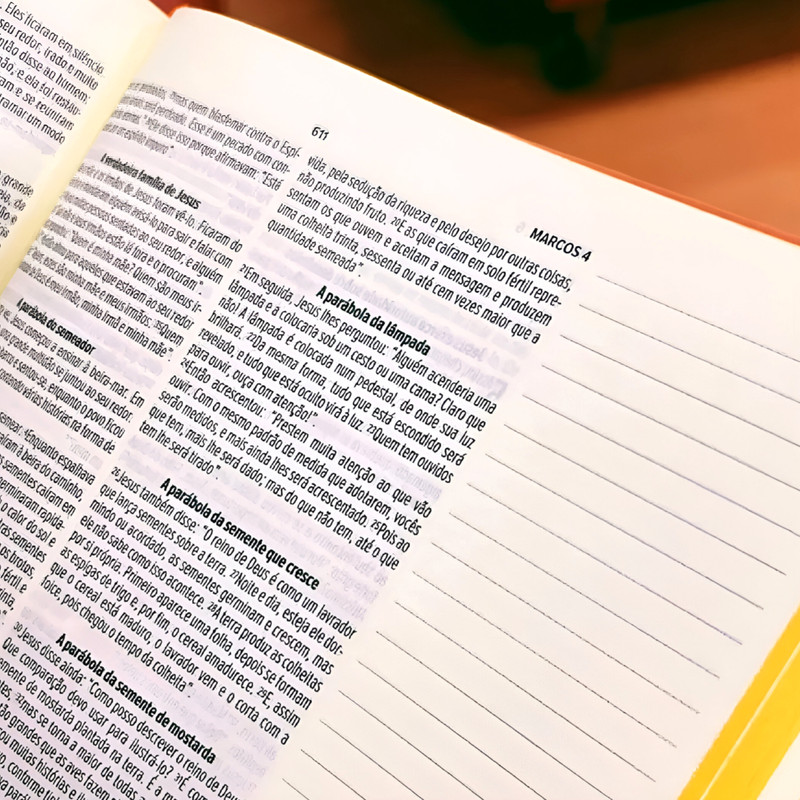 Eles ficaram em silêncio
seu redor, irado e muito
então disse ao homem:
mão, e ela foi restau-
e se reuniram
tramar um modo
grande
611
MARCOS 4
mas quem blasfemar contra o Espí-
será perdoado. Esse é um pecado com con-
Ele disse isso porque afirmavam: “Está
A verdadeira família de Jesus
e os irmãos de Jesus foram vê-lo. Ficaram do
mandaram alguém avisá-lo para sair e falar com
pessoas sentadas ao seu redor, e alguém
e seus irmãos estão lá fora e o procuram”.
“Quem é minha mãe? Quem são meus ir-
para aqueles que estavam ao seu redor
esses são minha mãe e meus irmãos. 35Quem
de Deus é meu irmão, minha irmã e minha mãe”.
A parábola do semeador
Jesus começou a ensinar à beira-mar. Em
grande multidão se juntou ao seu redor,
e sentou-se, enquanto o povo ficou
várias histórias na forma de
semear. Enquanto espalhava
à beira do caminho,
sementes caíram em
germinaram rapida-
o calor do sol e
Outras sementes
os brotos
fértil e
30Jesus disse ainda: “Como posso descrever o reino de Deus?
Que comparação devo usar para ilustrá-lo? 31É como
semente de mostarda plantada na terra. É a m
32mas se torna a maior de todas a
grandes que as aves fazem
muitas histórias e
conforme
vida, pela sedução da riqueza e pelo desejo por outras coisas,
não produzindo fruto. 20E as que caíram em solo fértil repre-
sentam os que ouvem e aceitam a mensagem e produzem
uma colheita trinta, sessenta ou até cem vezes maior que a
quantidade semeada”.
A parábola da lâmpada
21Em seguida, Jesus lhes perguntou: “Alguém acenderia uma
lâmpada e a colocaria sob um cesto ou uma cama? Claro que
não! A lâmpada é colocada num pedestal, de onde sua luz
brilhará. 22Da mesma forma, tudo que está escondido será
revelado, e tudo que está oculto virá à luz. 23Quem tem ouvidos
para ouvir, ouça com atenção!”.
24Então acrescentou: “Prestem muita atenção ao que vão
ouvir. Com o mesmo padrão de medida que adotarem, vocês
serão medidos, e mais ainda lhes será acrescentado. 25Pois ao
que tem, mais lhe será dado; mas do que não tem, até o que
tem lhe será tirado”.
A parábola da semente que cresce
26Jesus também disse: “O reino de Deus é como um lavrador
que lança sementes sobre a terra. 27Noite e dia, esteja ele dor-
mindo ou acordado, as sementes germinam e crescem, mas
ele não sabe como isso acontece. 28A terra produz as colheitas
por si própria. Primeiro aparece uma folha, depois se formam
as espigas de trigo e, por fim, o cereal amadurece. 29E, assim
que o cereal está maduro, o lavrador vem e o corta com a
foice, pois chegou o tempo da colheita”.
A parábola da semente de mostarda